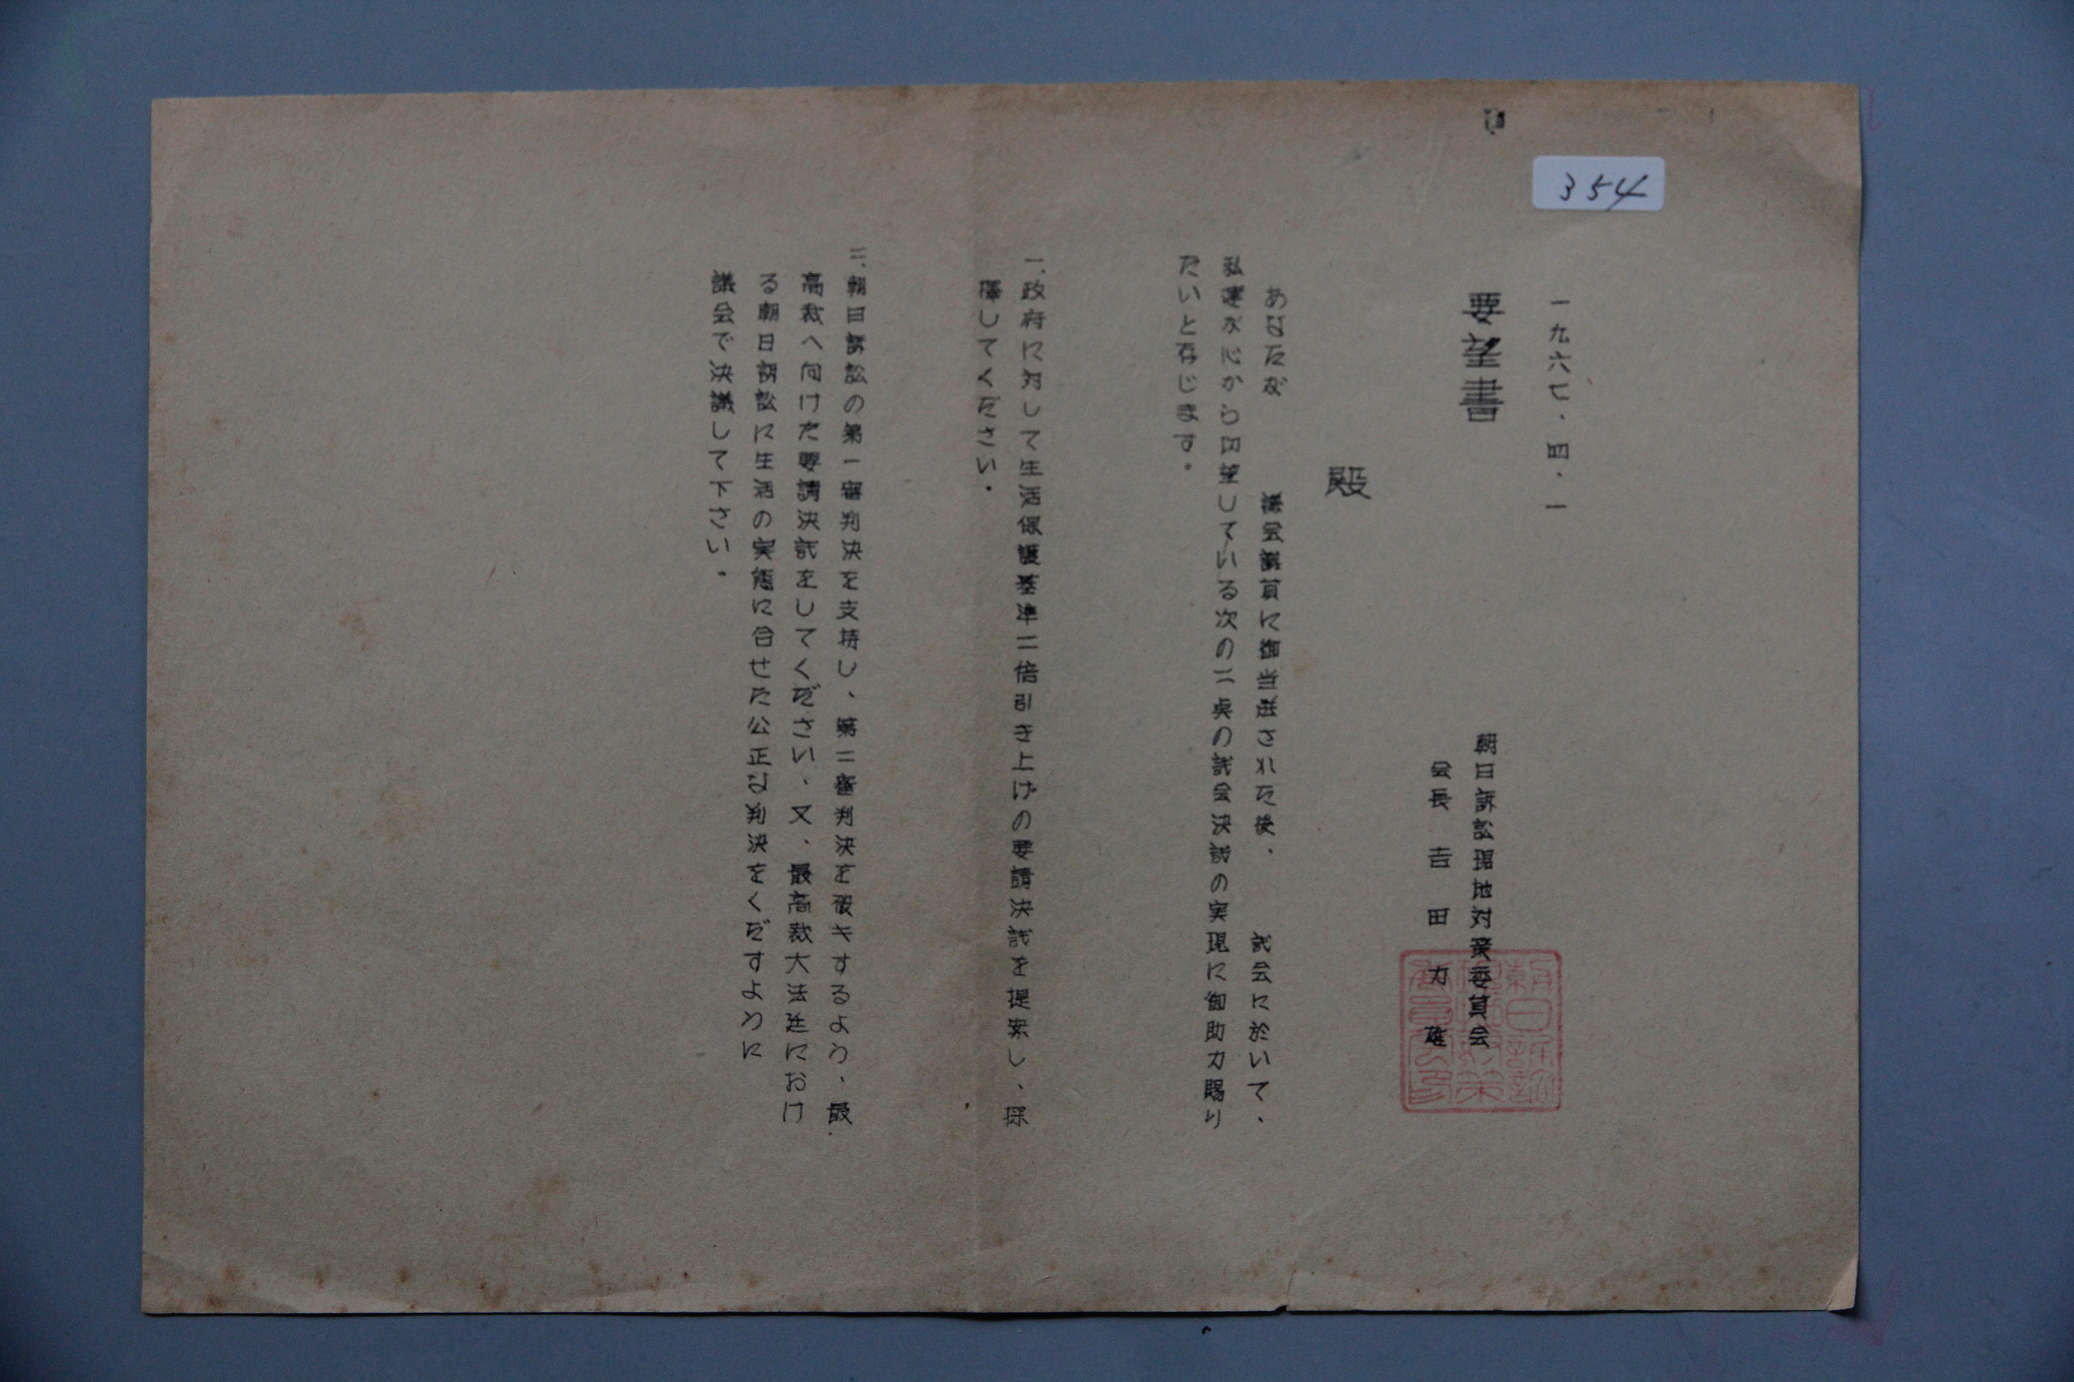 354
一九六七、四、一
要望書
朝日訴訟現地対策委員会
会長 吉田力雄
殿
あなたが 議会議員に御当選された後、 議会に於いて、
私達が心から切望している次の二点の議会決議の実現に御助力賜り
たいと存じます。
一、政府に対して生活保護基準二倍引き上げの要請決議を提案し、採
択してください。
二、朝日訴訟の第一審判決を支持し、第二審判決を破キするよう、最
高裁へ向けた要請決議をしてください、又、最高裁大法廷におけ
る朝日訴訟に生活の実態に合せた公正な判決をくだすように
議会で決議して下さい。